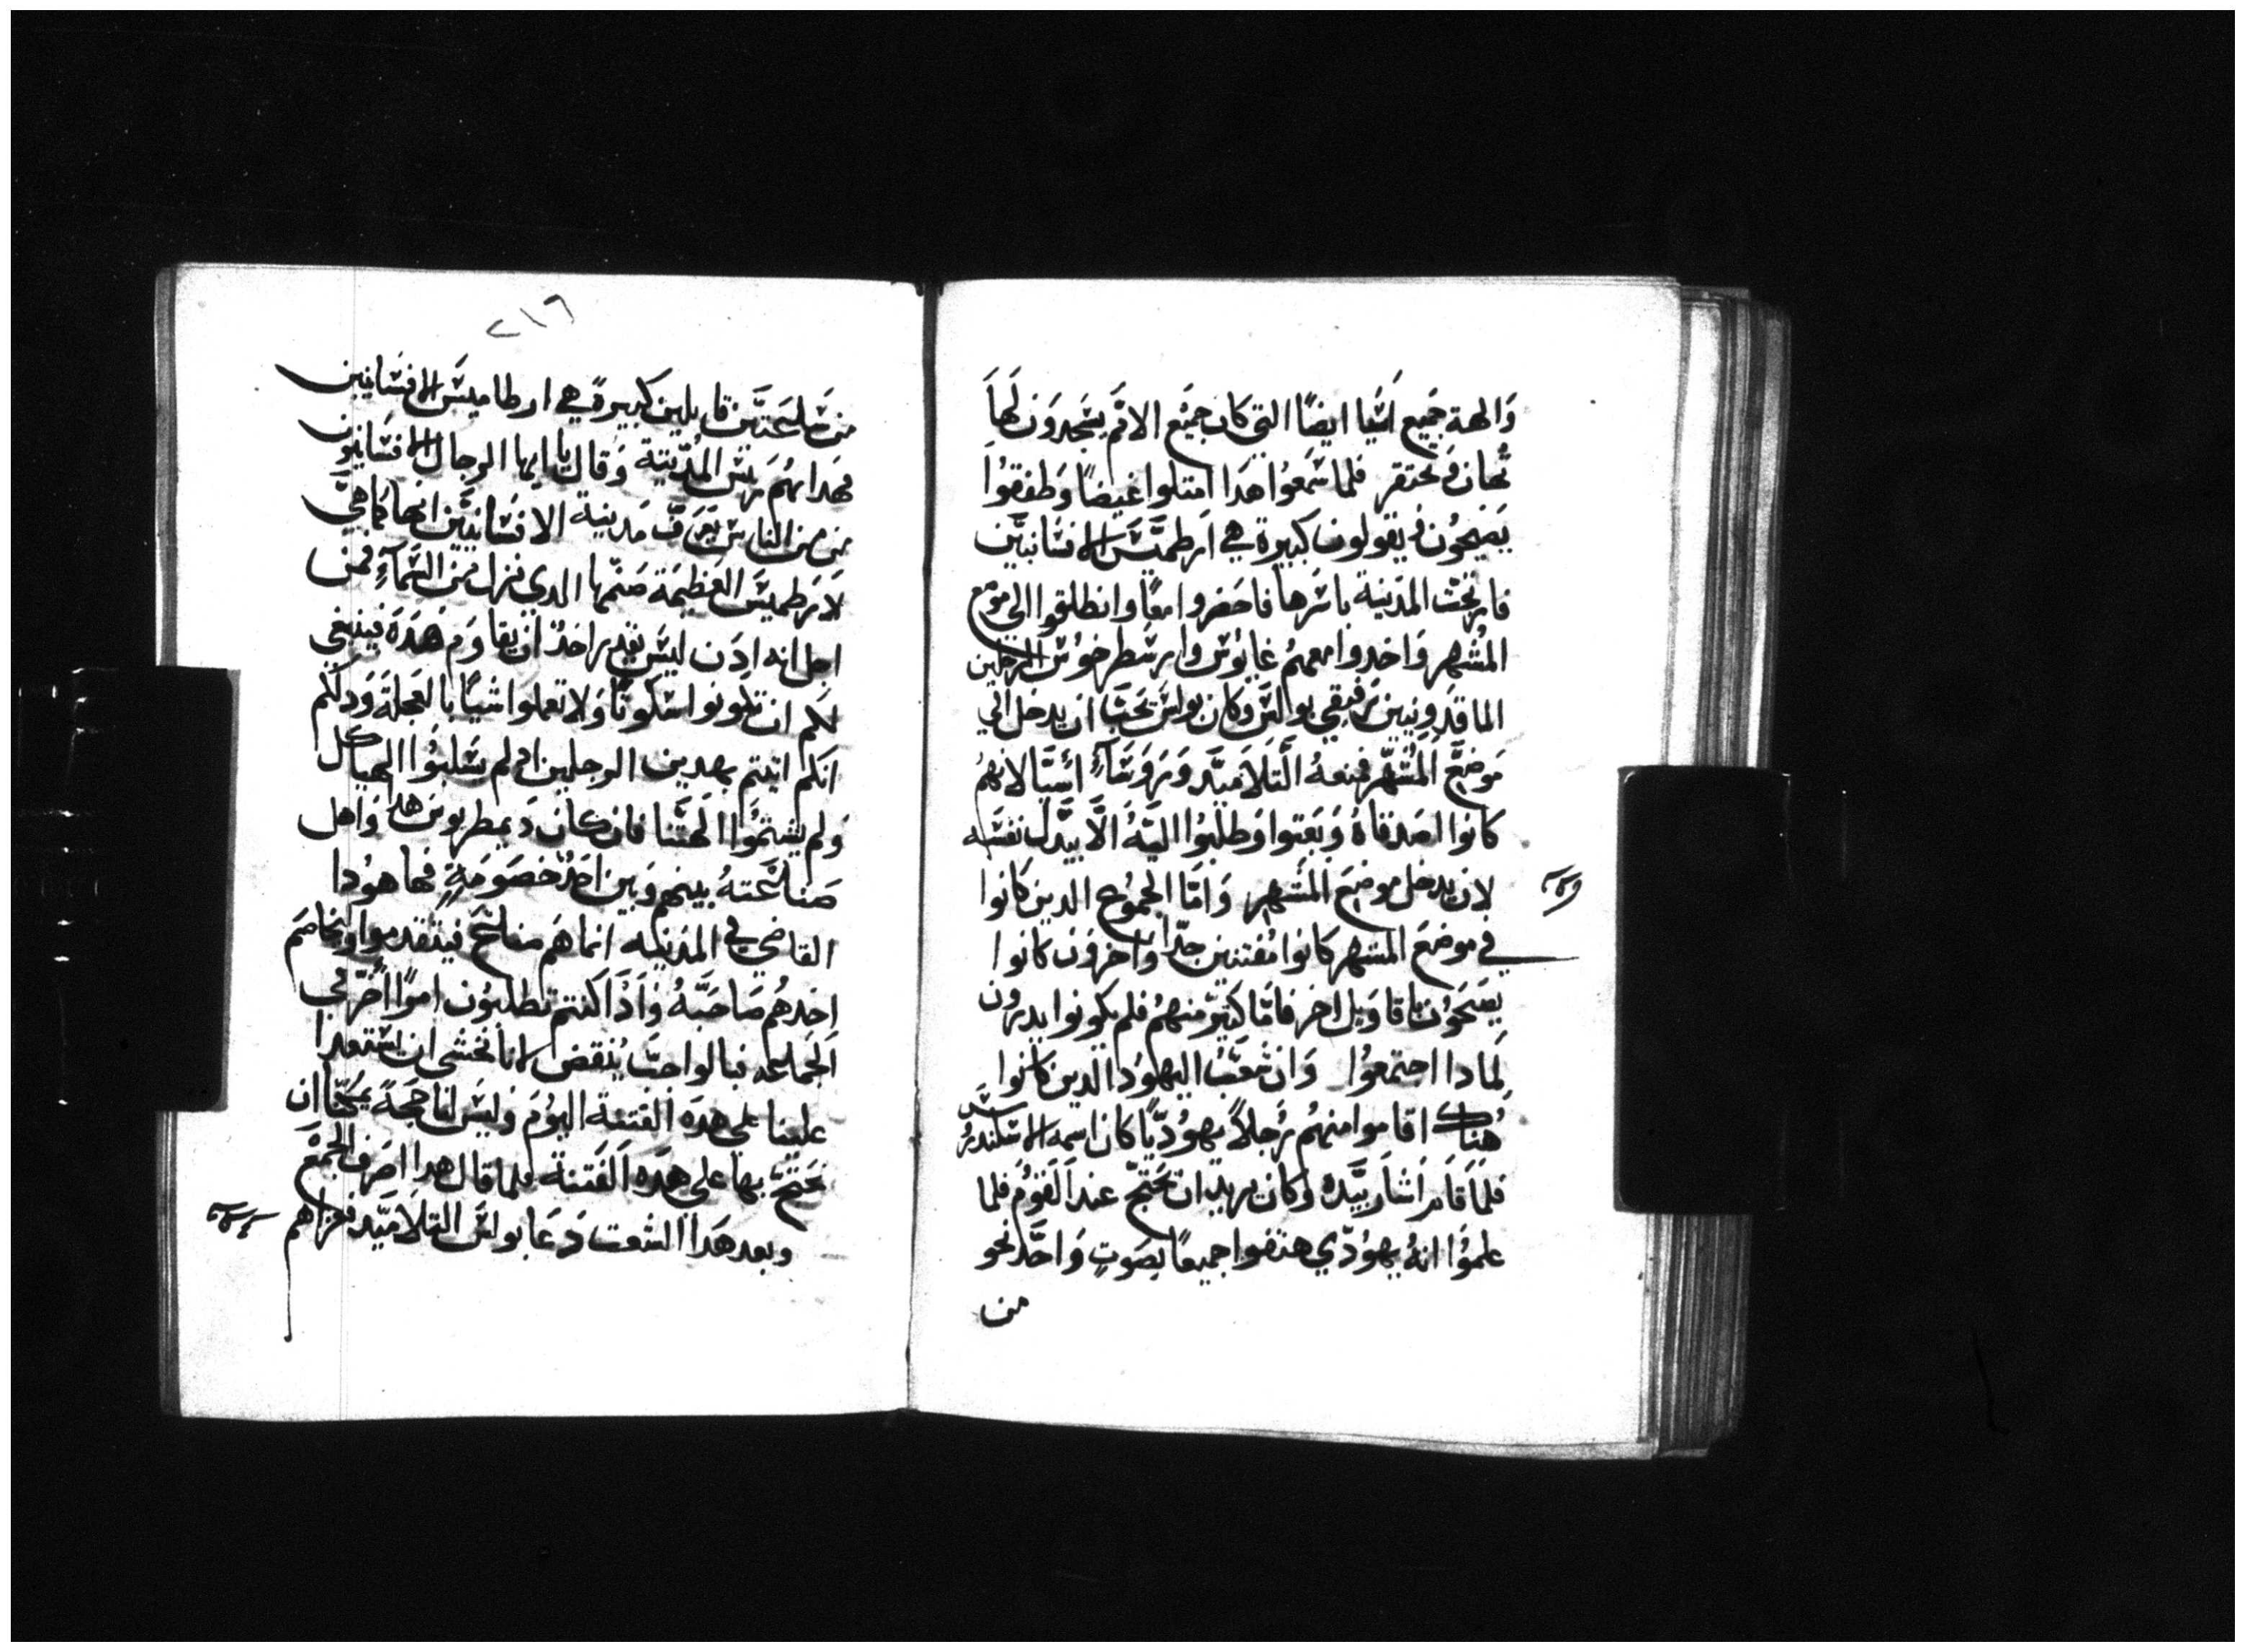 والهة جميع اسيا ايضا التي كان جميع الامم يسجدون لها
تهان وتحتقر فلما سمعوا هدا امتلوا غيضا وطفقوا
يصيحون ويقولون كبيرة هي ارطميس الافسانيين
فارتجت المدينة باسرها فاحضروا معا وانطلقوا الي موضع
المشهر واخدوا معهم غايوس وارسطرخوس الرجلين
الماقدونيين رفيقي بوالس وكان بولس يحب ان يدخل الي
موضع المشهر فمنعه التلاميد وروسا اسيا لانهم
كانوا اصدقاه وبعتوا وطلبوا اليه الا يبدل نفسه
لان يدخل موضع المشهر واما الجموع الدين كانوا
في موضع المشهر كانوا مفتنين جدا واخرون كانوا
يصيحون باقاويل اخر فاما كتير منهم فلم يكونوا يدرون
لمادا اجتمعوا وان شعب اليهود الدين كانوا
هناك اقاموا منهم رجلا يهوديا كان اسمه الاسكندروس
فلما قام اشار بيده وكان يريد ان يحتج عند القوم فلما
علموا انه يهودي هتفوا جميعا بصوت واحد نحو
من
٢١٦
من ساعتين قايلين كبيرة هي ارطاميس الافسانيين
فهداهم ريس المدينة وقال يا ايها الرجال الافسانيون
من من الناس يعرف مدينة الافسانيين انها كاهي
لارطميس العظيمة صنمها الدي نزل من السما فمن
اجل انه ادن ليس يقدر احد ان يقاوم هده فينبغي
لكم ان تكونوا سكوتا ولا تعملوا شيا بالعجلة ودلكم
انكم اتيتم بهدين الرجلين اد لم يسلبوا الهياكل
ولم يشتموا الهتنا فان كان ديمطريوس هدا واهل
صناعته بينهم وبين احد خصومة فها هودا
القاضي في المدينه انما هم صناع فيتقدموا ويخاصم
احدهم صاحبه وادا كنتم تطلبون امرا اخر في
الجماعه فبالواجب ينقض لانا نخشي ان استعدا
علينا علي هده الفتنة اليوم وليس لنا حجة يمكنا ان
نحتج بها علي هده الفتنة فلما قال هدا اصرف الجمع
وبعد هدا الشعت دعا بولس التلاميد فعزاهم